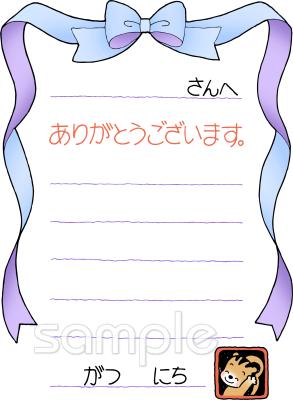 さんへ
ありがとうございます。
sample
がつ にち